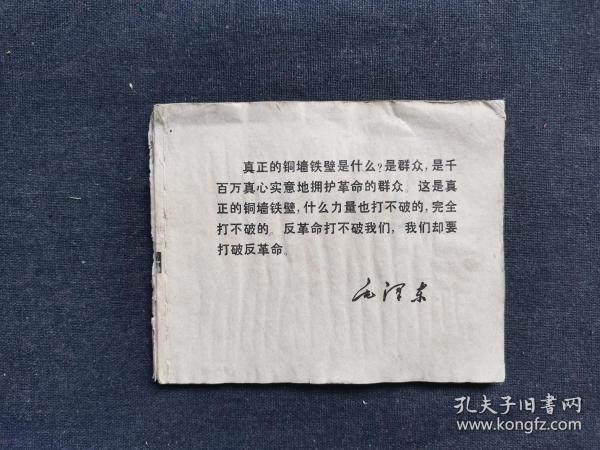 真正的铜墙铁壁是什么?是群众,是千
百万真心实意地拥护革命的群众。这是真
正的铜墙铁壁,什么力量也打不破的,完全
打不破的。反革命打不破我们,我们却要
打破反革命。
毛泽东
孔夫子旧書网
www.kongfz.com